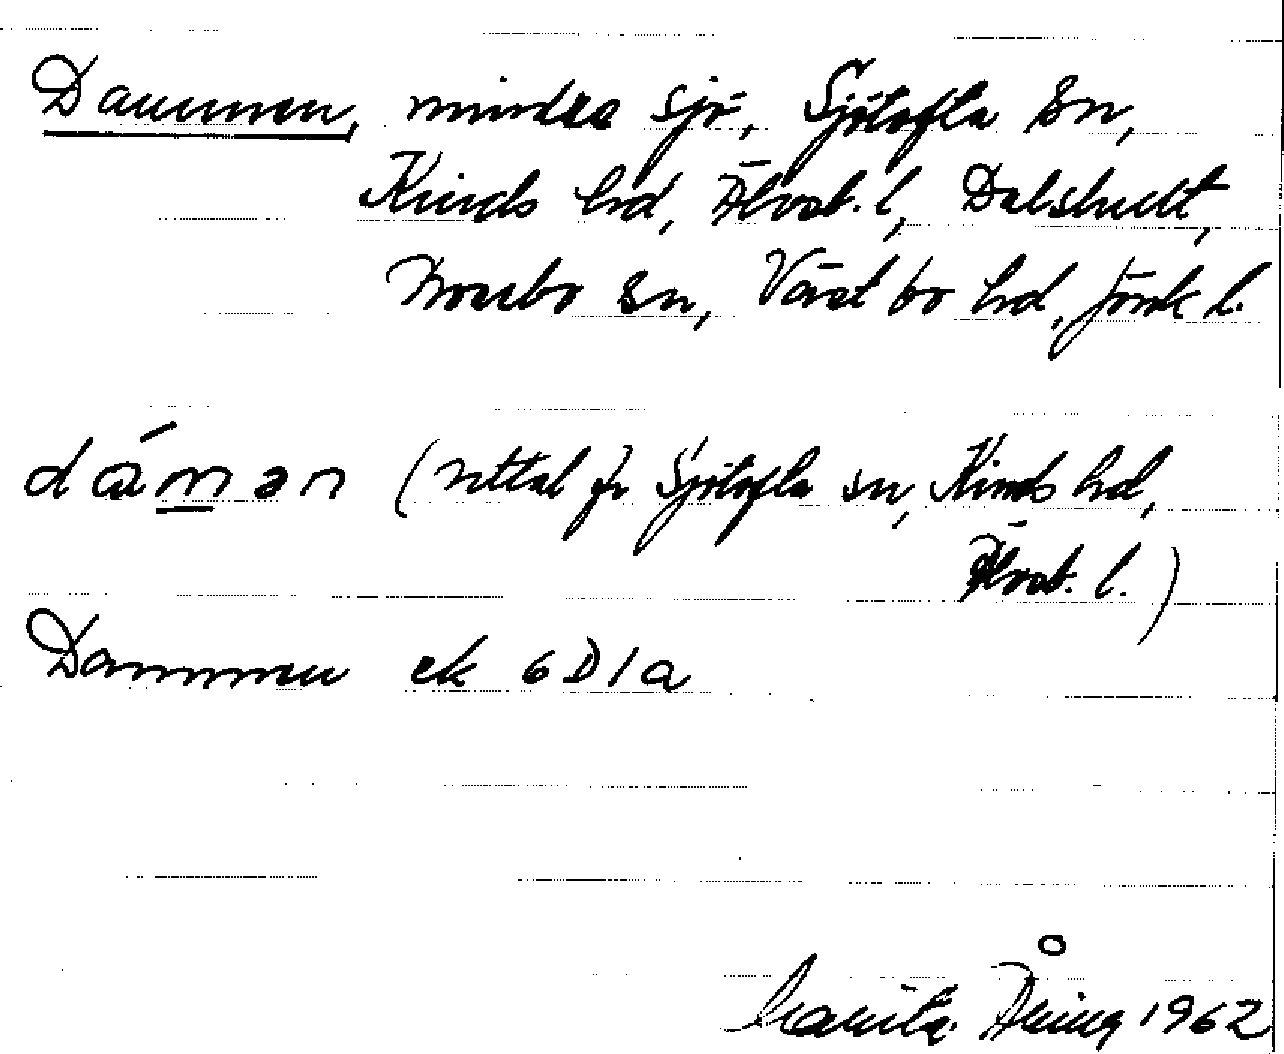 Dammen, mindre sjö, Sjötofta sn,
Kinds hd, Älvsb. l, Dalshult,
Bosebo sn, Västbo hd, Jönk l.
dám̲ən (uttal fr Sjötofta sn, Kinds hd,
Älvsb. l.)
Dammen ek 6D1a
Åning 1962